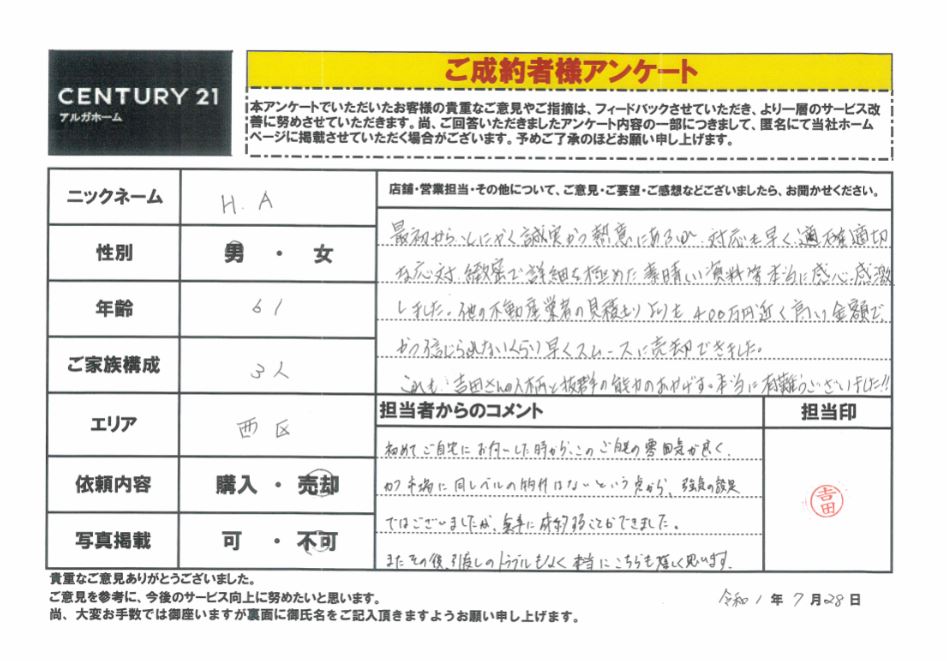 CENTURY 21
アルガホーム
ご成約者様アンケート
本アンケートでいただいたお客様の貴重なご意見やご指摘は、フィードバックさせていただき、より一層のサービス改
善に努めさせていただきます。尚、ご回答いただきましたアンケート内容の一部につきまして、匿名にて当社ホーム
ページに掲載させていただく場合がございます。予めご了承のほどお願い申し上げます。
ニックネーム H.A
性別 男 ・ 女
年齢 61
ご家族構成 3人
エリア 西区
依頼内容 購入 ・ 売却
写真掲載 可 ・ 不可
店舗・営業担当・その他について、ご意見・ご要望・ご感想などございましたら、お聞かせください。
最初からとにかく誠実かつ熱意にあふれ 対応も早く適確適切
な応対、緻密で詳細を極めた素晴しい資料等本当に感心・感激
しました。他の不動産業者の見積もりよりも400万円近く高い金額で
かつ信じられないくらい早くスムースに売却できました。
これも吉田さんの人柄と抜群の能力のおかげです。本当に有難うございました!!
担当者からのコメント
初めてご自宅にお伺いした時から、このご自宅の雰囲気が良く、
かつ市場に同レベルの物件はないという点から、強気の設定
ではございましたが、無事に成約することができました。
またその後、引渡しのトラブルもなく本当にこちらも嬉しく思います。
担当印
吉田
貴重なご意見ありがとうございました。
ご意見を参考に、今後のサービス向上に努めたいと思います。
尚、大変お手数では御座いますが裏面に御氏名をご記入頂きますようお願い申し上げます。
令和1年7月28日